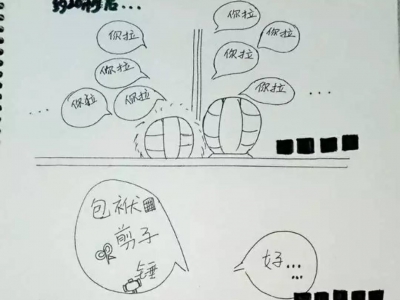 秒后...
你拉
你拉
你拉
你拉
你拉
你拉
你拉
你拉
...
...
包袱
剪子
锤
好...
...